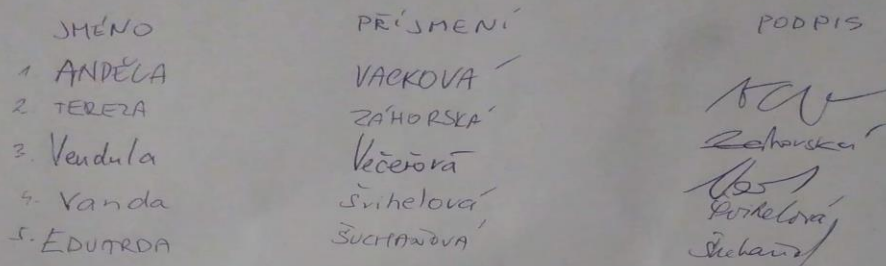 JMÉNO PŘÍJMENÍ PODPIS
1 ANDĚLA VACKOVÁ
2 TEREZA ZÁHORSKÁ Zahorská
3. Vendula Večeřová
4. Vanda Švihelová Švihelová
5. EDUARDA ŠUCHAŇOVÁ